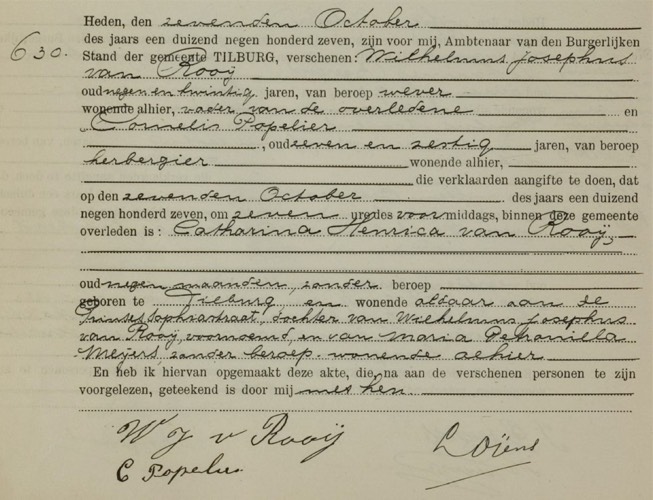 Heden, den zevenden October
630.
des jaars een duizend negen honderd zeven, zijn voor mij, Ambtenaar van den Burgerlijken
Stand der gemeente TILBURG, verschenen: Wilhelmus Josephus
van Rooij
oud negen en twintig jaren, van beroep wever
wonende alhier, vader van de overledene en
Cornelis Popelier
, oud zeven en zestig jaren, van beroep
herbergier wonende alhier,
die verklaarden aangifte te doen, dat
op den zevenden October des jaars een duizend
negen honderd zeven, om zeven ure des voormiddags, binnen deze gemeente
overleden is: Catharina Henrica van Rooij,
oud negen maanden, zonder beroep
geboren te Tilburg en wonende aldaar aan de
Prinses Sophiastraat, dochter van Wilhelmus Josephus
van Rooij voornoemd, en van Maria Petronella
Meijers, zonder beroep, wonende alhier
En heb ik hiervan opgemaakt deze akte, die na aan de verschenen personen te zijn
voorgelezen, geteekend is door mij met hen
W J v Rooij
C Popelier